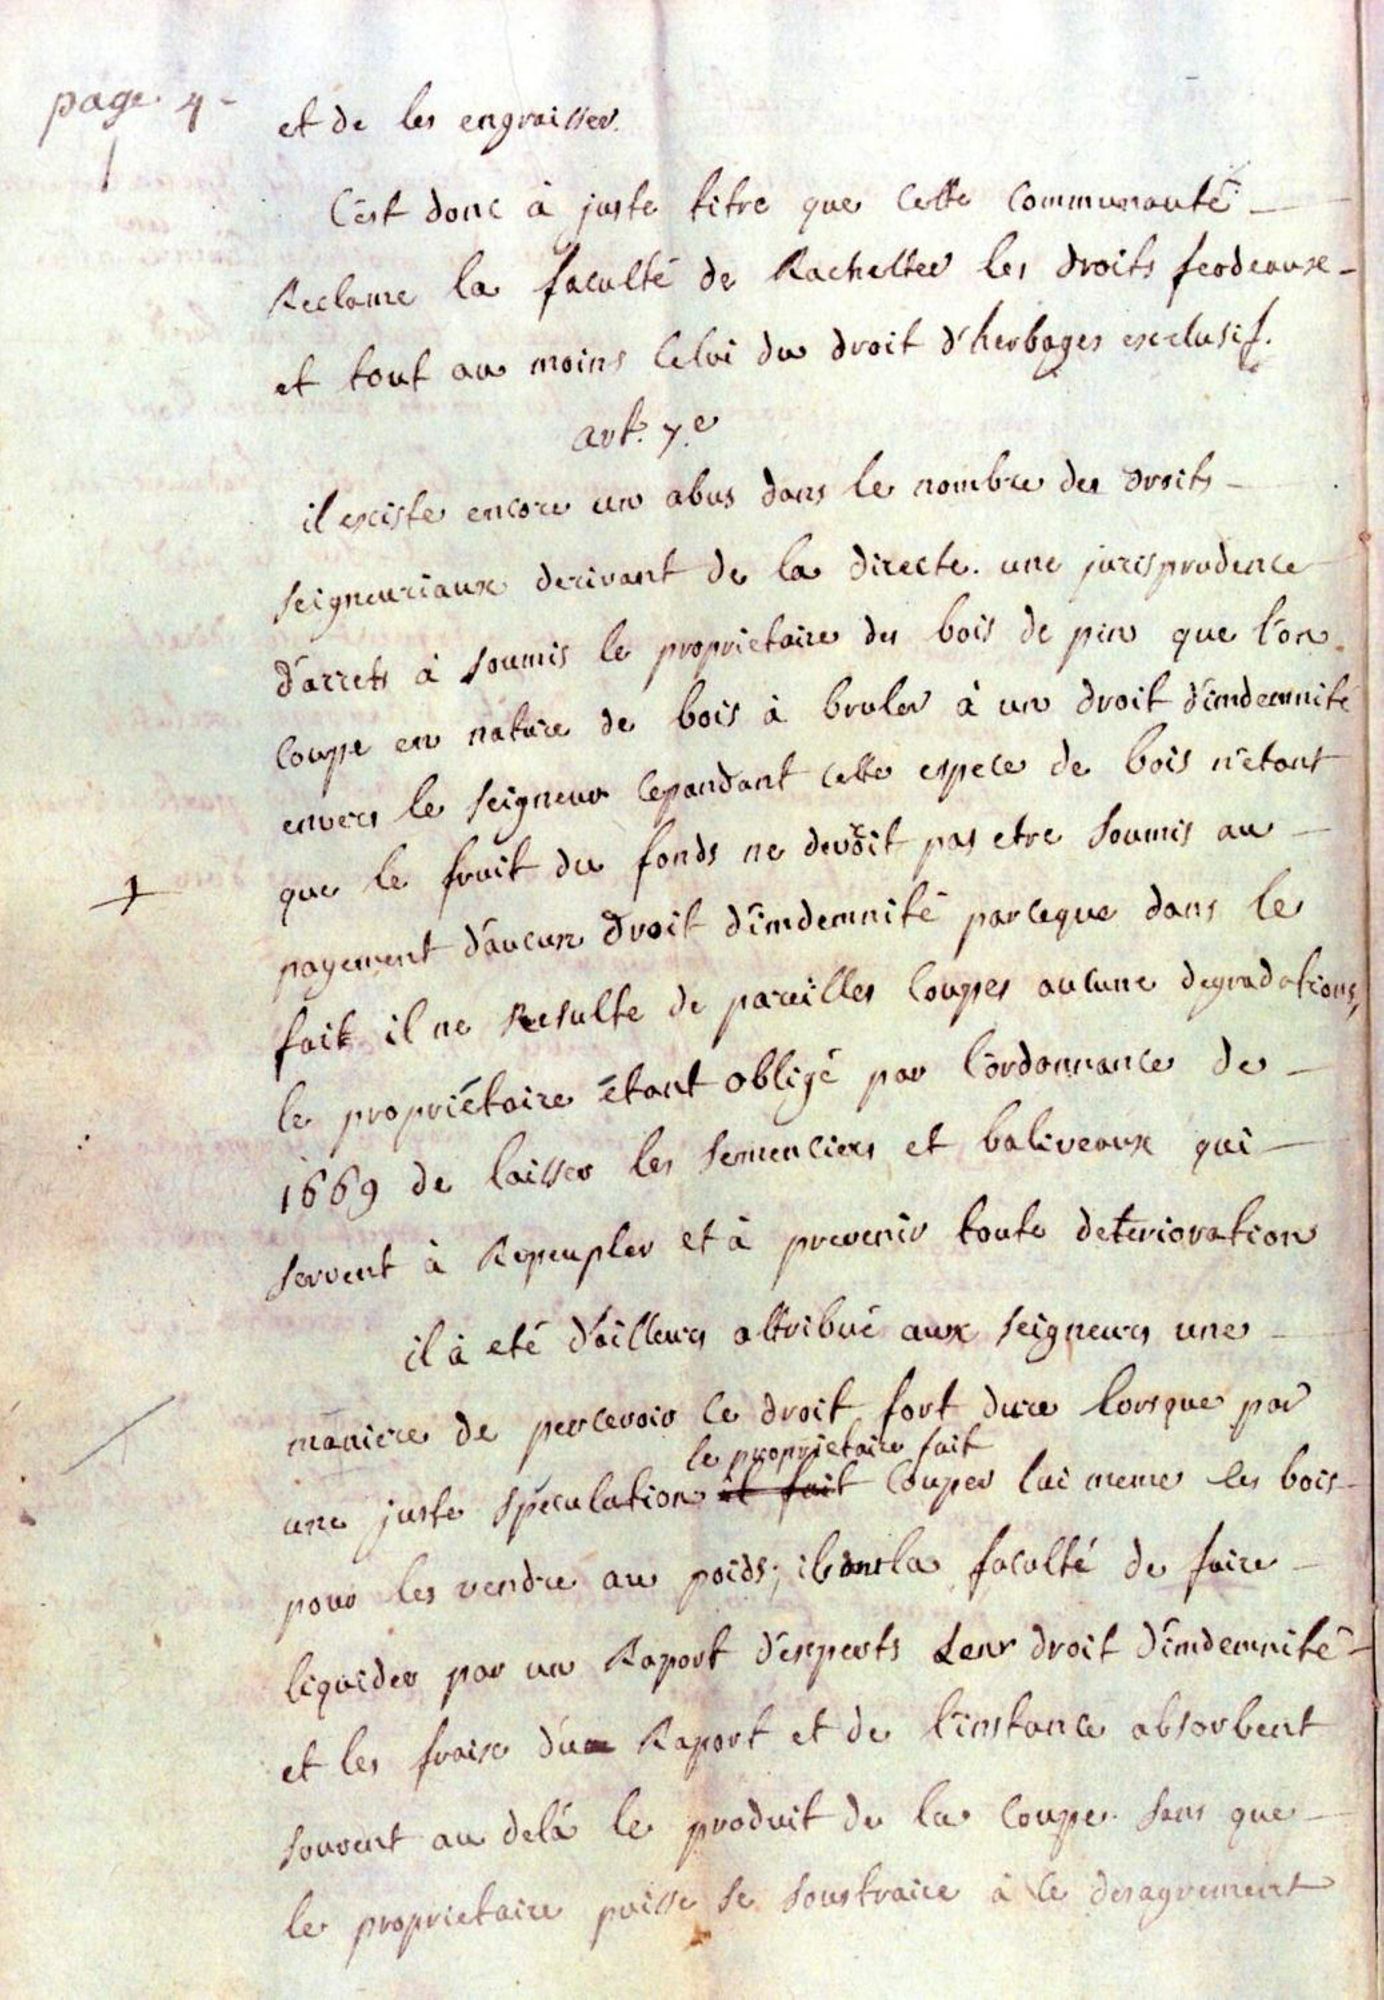 page 4 -
et de les engraisser.
C'est donc à juste titre que cette Communauté -
Reclame la faculté de Rachetter les droits feodeaux -
et tout au moins celui du droit d'herbages exclusif.
art. 7.e
il existe encore un abus dans le nombre des droits -
seigneuriaux derivant de la directe. une jurisprudence
d'arrets à soumis le proprietaire des bois de pin que l'on
coupe en nature de bois à bruler à un droit d'imdemnité
envers le seigneur cepandant cette espece de bois n'etant
que le fruit du fonds ne devroit pas etre soumis au -
payement d'aucun droit d'imdemnité parceque dans le
fait il ne Resulte de pareilles coupes aucune degradations,
le propriétaire étant obligé par l'ordonnance de -
1669 de laisser les semenciers et baliveaux qui -
servent à Repeupler et à prevenir toute deterioration
il à eté d'ailleurs attribué aux seigneurs une -
maniere de percevoir ce droit fort dure lorsque par
le proprietaire fait
une juste speculation il fait couper lui meme les bois -
pour les vendre au poids; ils ont la faculté de faire -
liquider par un Raport d'experts Leur droit d'imdemnité -
et les fraix du Raport et de l'instance absorbent
souvent au delà le produit de la coupe. sans que -
le proprietaire puisse se soustraire à ce desagrement